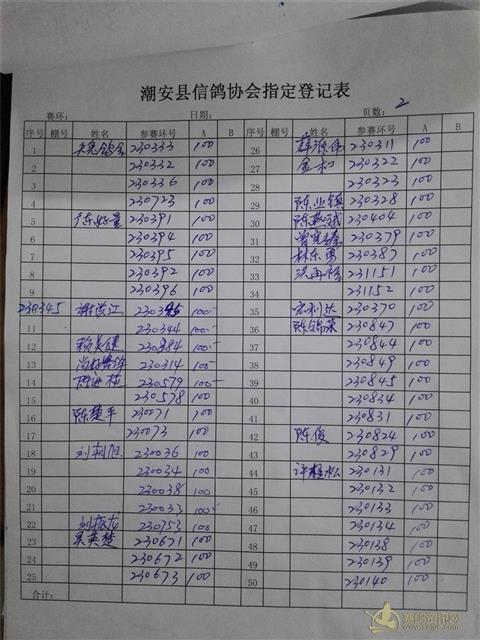 潮安县信鸽协会指定登记表
赛环: 日期: 页数: 2
序号 棚号 姓名 参赛环号 A B 序号 棚号 姓名 参赛环号 A B
1 230333 100 26 230311 100
2 230332 100 27 金和 230322 100
3 230336 100 28 230323 100
4 230723 100 29 陈业镇 230328 100
5 230391 100 30 230404 100
6 230394 100 31 230379 100
7 230395 100 32 林东勇 230387 100
8 230392 100 33 231151 100
9 230396 100 34 231152 100
230345 谢洪江 100 35 宏利达 230370 100
11 230344 100 36 230847 100
12 赖美健 230984 100 37 230844 100
13 230314 100 38 230849 100
14 230579 100 39 230845 100
15 230578 100 40 230834 100
16 陈楚平 230071 100 41 230831 100
17 230073 100 42 陈俊 230824 100
18 230036 100 43 230829 100
19 230034 100 44 230131 100
20 230038 100 45 230132 100
21 230033 100 46 230133 100
22 刘振龙 230753 100 47 230134 100
23 吴英楚 230671 100 48 230138 100
24 230672 100 49 230139 100
25 230673 100 50 230140 100
合计:
赛鸽资讯网